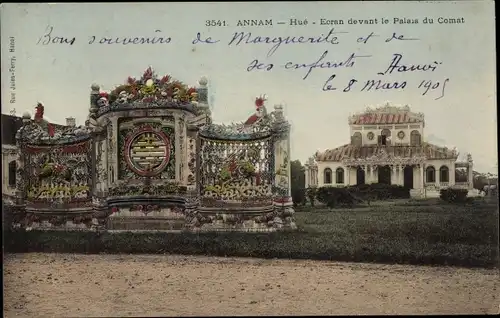 3541. ANNAM — Hué - Ecran devant le Palais du Comat
Bons souvenirs de Marguerite et de
ses enfants Hanoï
le 8 Mars 1905
3. Rue Jules-Ferry, Hanoi